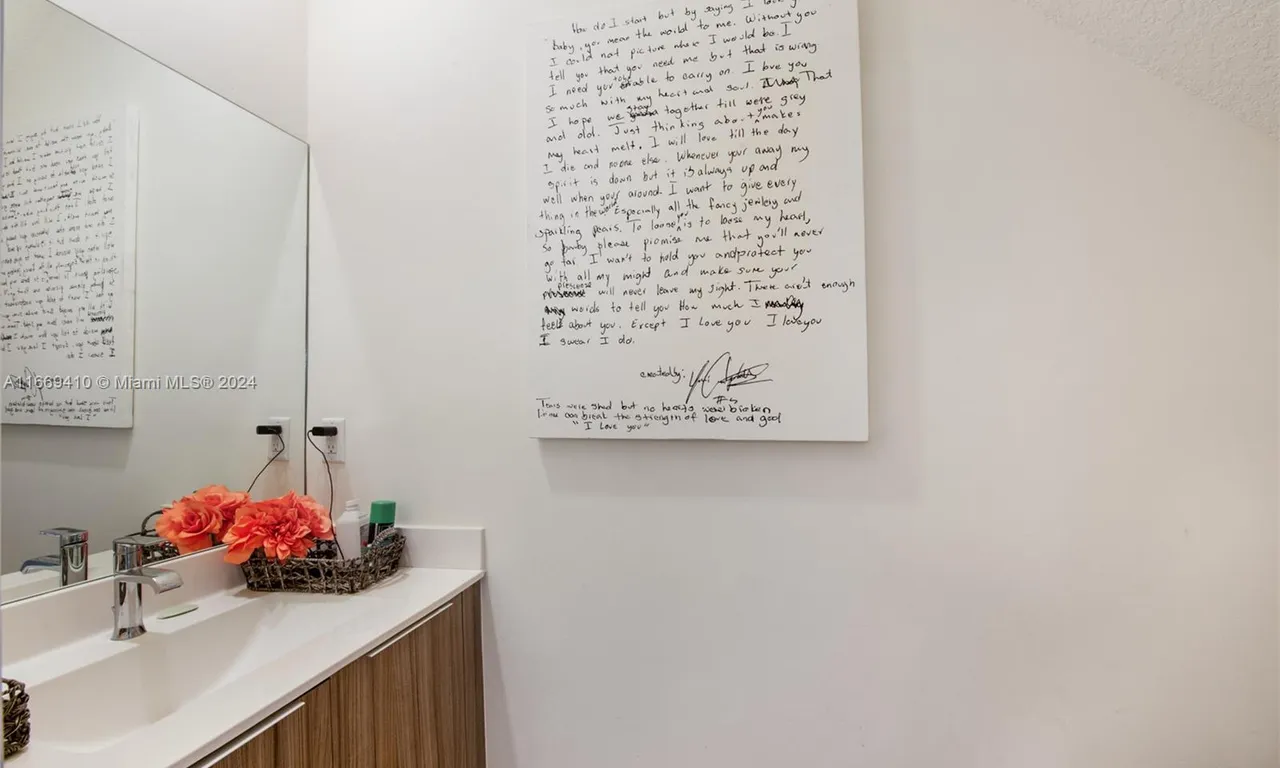 How do I start but by saying I love y
baby, you mean the world to me. Without you
I could not picture where I would be. I
tell you that you need me but that is wrong
I need you to be able to carry on. I love you
so much with my heart and soul. That
I hope we stay together till were grey
and old. Just thinking about you makes
my heart melt. I will love till the day
I die and noone else. Whenever your away my
spirit is down but it is always up and
well when your around. I want to give every
thing in the world Especially all the fancy jewlery and
sparkling pears. To loose you is to loose my heart,
so baby please promise me that you'll never
go far. I want to hold you and protect you
with all my might and make sure your
prescense will never leave my sight. There ain't enough
words to tell you How much I
feel about you. Except I Love you I love you
I swear I do.
created by:
#5
Tears were shed but no hearts were broken
can break the strength of love and god
"I Love you"
A11669410 © Miami MLS® 2024